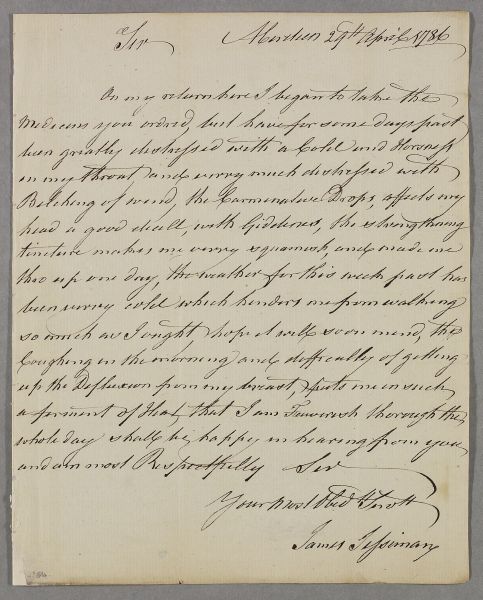 Sir Aberdeen 29th April 1786
On my return here I began to take the
Medicens you ordred, but have for some days past
been greatly distressed with a Cold and Horsness
in my throat and verry much distressed with
Belching of wind, the Carminative Drops affects my
head a good deall, with Gidderness, the strengthening
tincture makes me verry squamish, and made me
thro up one day, the weather for this week past has
been verry cold which henders me from walking
so much as I ought, hope it will soon mend, the
Coughing in the morning and difficulty of getting
up the Defluxion from my breast, puts me in such
a ferment of Heat, that I am Feaverish thorough the
whole day shall be happy in hearing from you
and am most Respectfully Sir
Your most Obed Servt
James Jessiman